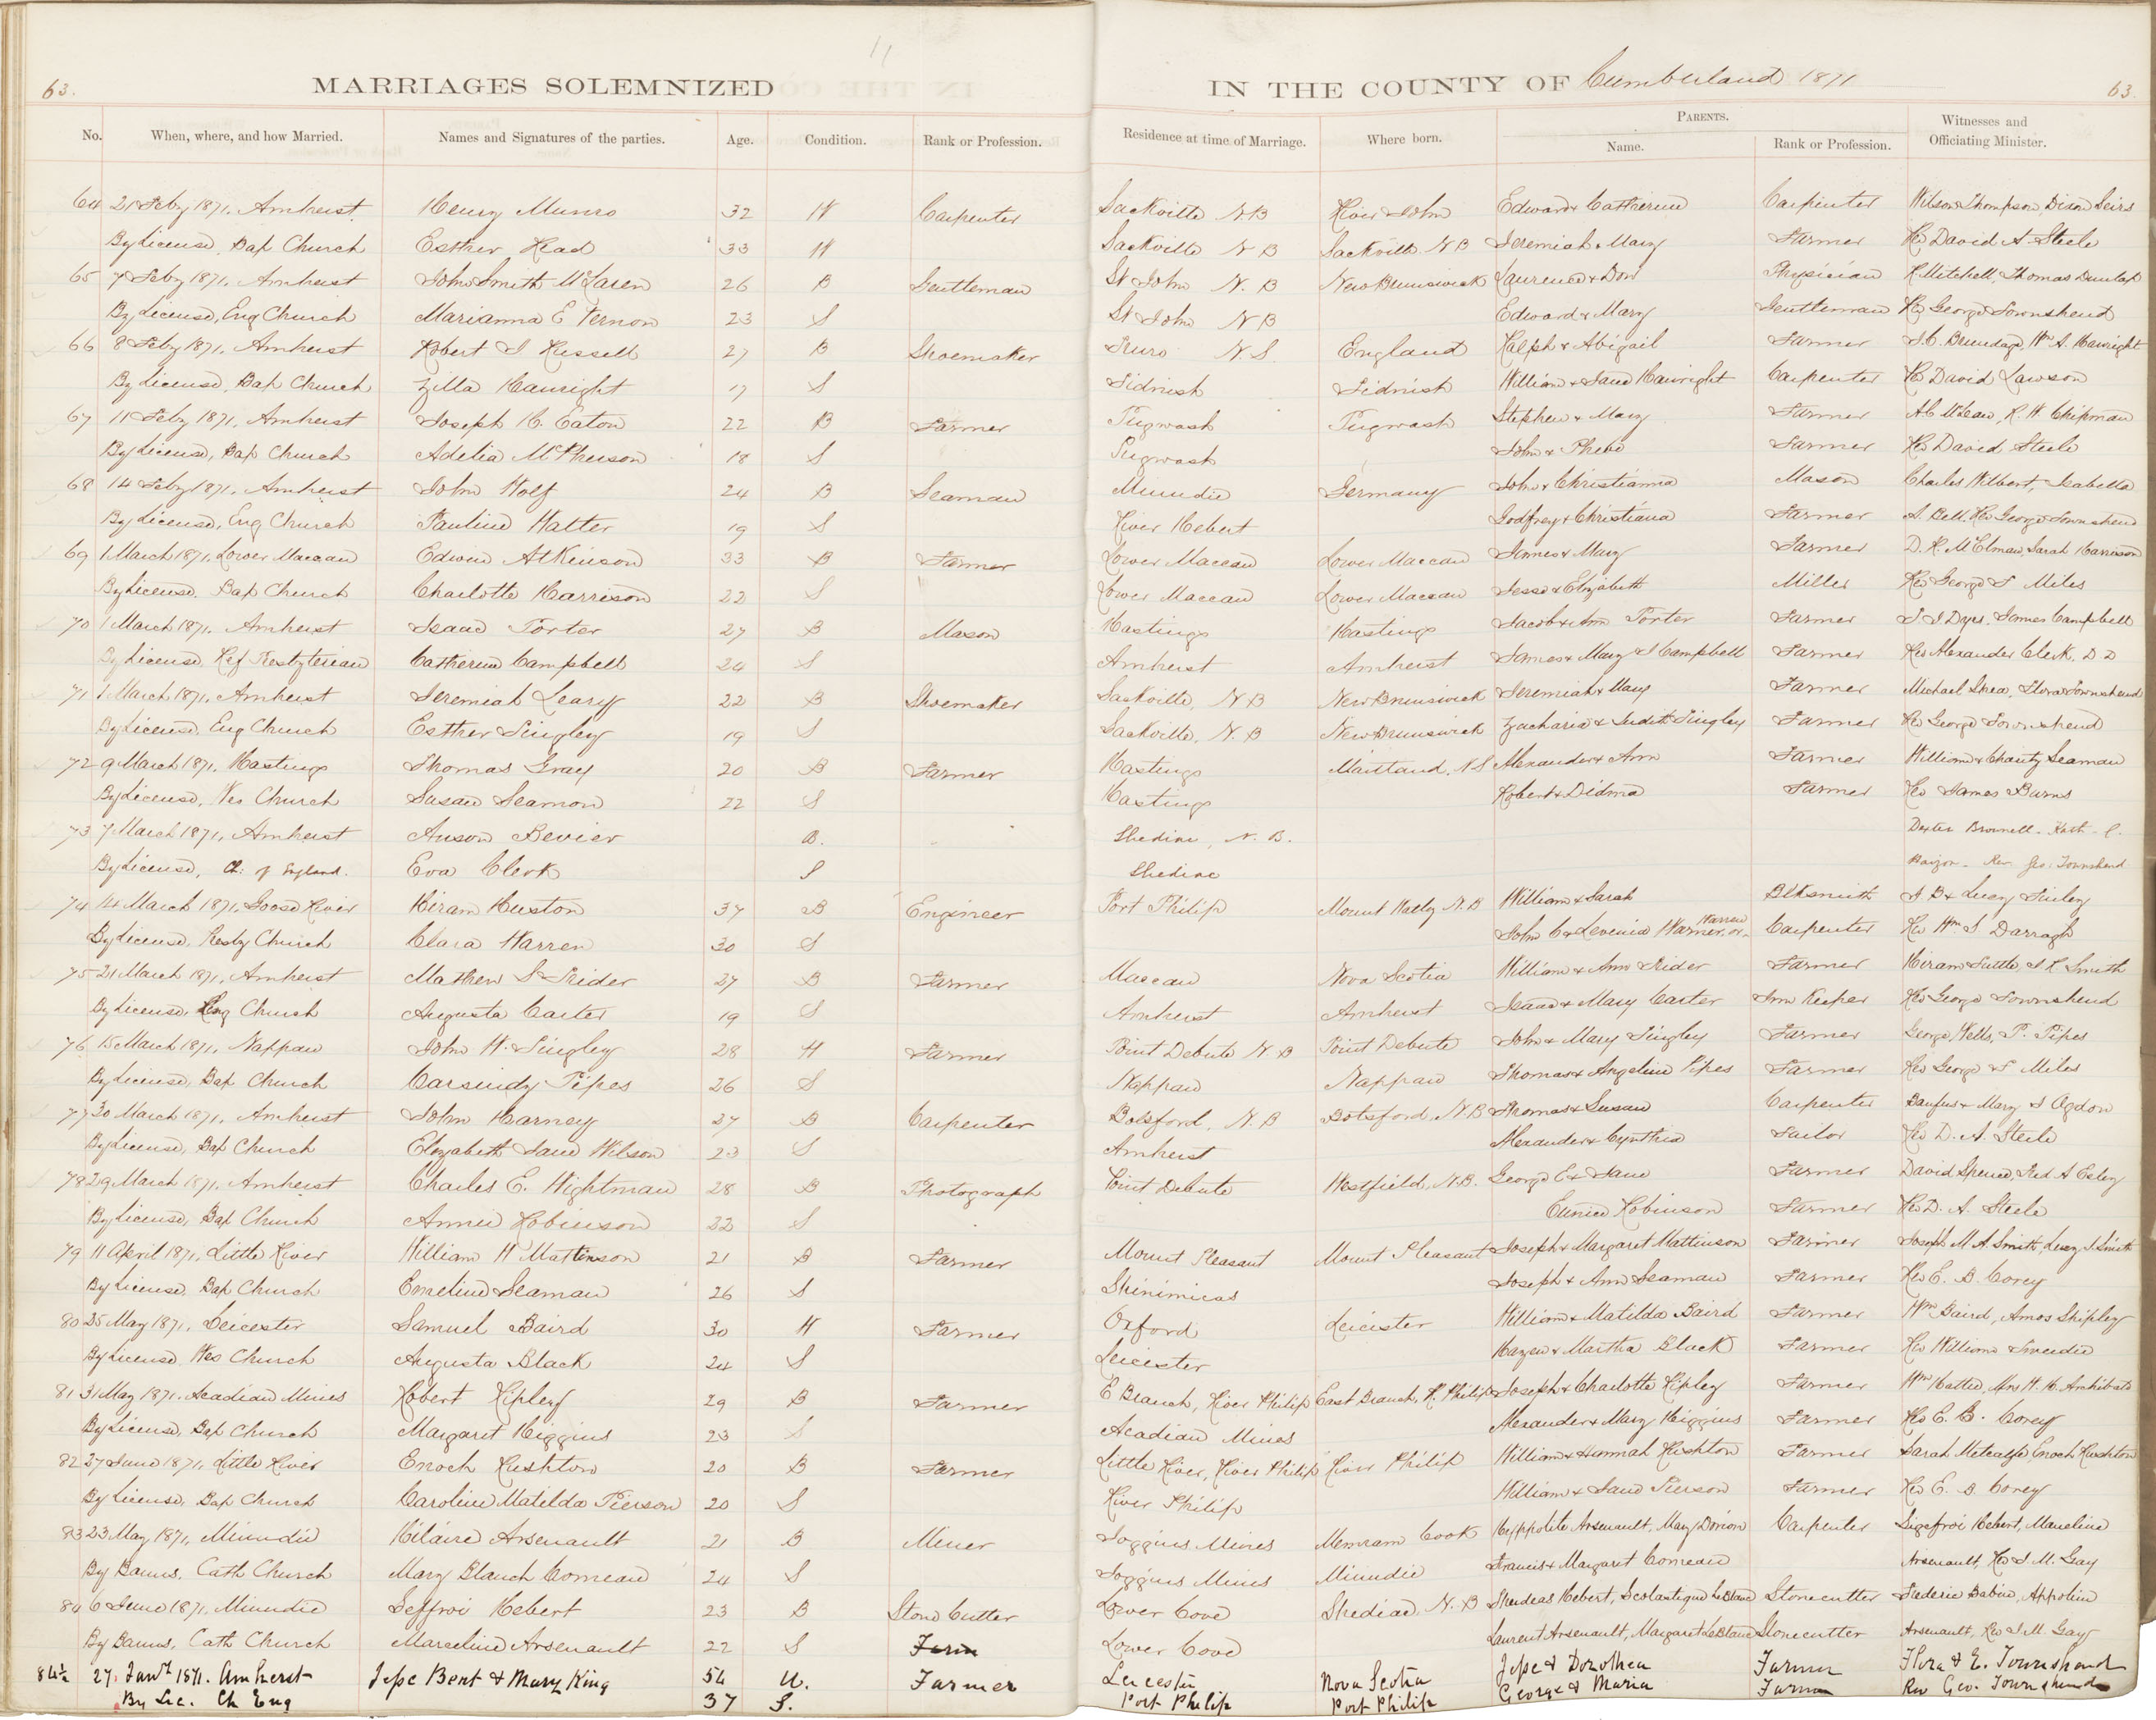 11
63. MARRIAGES SOLEMNIZED IN THE COUNTY OF Cumberland 1871 63.
No. When, where, and how Married. Names and Signatures of the parties. Age. Condition. Rank or Profession. Residence at time of Marriage. Where born. PARENTS. Name. Rank or Profession. Witnesses and Officiating Minister.
64 21 Feby 1871, Amherst Henry Munro 32 W Carpenter Sackville NB River John Edward & Catherine Carpenter Wilson Thompson, Dixon
By License, Bap Church Esther Head 33 W Sackville N B Sackville N B Jeremiah & Mary Farmer Rev David A Steele
65 7 Feby 1871, Amherst John Smith McLaren 26 B Gentleman St John N. B New Brunswick Laurence & Physician R Mitchell, Thomas Dunlap
By License, Eng Church Marianna E Vernon 23 S St John N B Edward & Mary Gentleman Rev George Townshend
66 8 Feby 1871, Amherst Robert S Russell 27 B Shoemaker Truro N.S. England Ralph & Abigail Farmer Wm A.
By License, Bap Church Zilla 17 S Tidnish Tidnish William & Jane Carpenter Rev David Lawson
67 11 Feby 1871, Amherst Joseph H. Eaton 22 B Farmer Pugwash Pugwash Stephen & Mary Farmer McLean, R. W. Chipman
By License, Bap Church Adelia McPherson 18 S Pugwash John & Phebe Farmer Rev David Steele
68 14 Feby 1871, Amherst John Wolf 24 B Seaman Minudie Germany John & Christianna Mason Charles Wilbert, Isabella
By License, Eng Church Pauline Hatter 19 S River Hebert Godfrey & Christiana Farmer A. Bell, Rev George Townshend
69 1 March 1871, Lower Maccan Edwin Atkinson 33 B Farmer Lower Maccan Lower Maccan James & Mary Farmer D. R. McElman Sarah Harrison
By License, Bap Church Charlotte Harrison 22 S Lower Maccan Lower Maccan Jesse & Elizabeth Miller Rev George F Miles
70 1 March 1871, Amherst Isaac Porter 27 B Mason Hastings Hastings Jacob & Ann Porter Farmer James Campbell
By License, Ref Presbyterian Catherine Campbell 24 S Amherst Amherst James & Mary J Campbell Farmer Rev Alexander Clerk, D D
71 1 March 1871, Amherst Jeremiah Leary 22 B Shoemaker Sackville, N B New Brunswick Jeremiah & Mary Farmer Michael Shea, Flora Townshend
By License, Eng Church Esther Tingley 19 S Sackville, N. B New Brunswick Zacharia & Judith Tingley Farmer Rev George Townshend
72 9 March 1871, Hastings Thomas Gray 20 B Farmer Hastings Maitland, N S Alexander & Ann Farmer William & Charity Seaman
By License, Wes Church Susan Seamon 22 S Hastings Robert & Didma Farmer Rev James Burns
73 7 March 1871, Amherst Anson Bevier B. Shediac, N. B. Dexter Brownell. Kath. C.
By License, Ch: of England. Eva Clerk S Shediac Rev Geo. Townshend
74 14 March 1871, Goose River Hiram Huston 37 B Engineer Port Philip Mount Hatley N.B William & Sarah Blksmith J B & Lucy
By License, Presby Church Clara Warren 30 S John C & Levenia Warner, or Warren Carpenter Rev Wm S Darragh
75 21 March 1871, Amherst Mathew S Trider 27 B Farmer Maccan Nova Scotia William & Ann Trider Farmer Hiram Tuttle J R Smith
By License, Eng Church Augusta Carter 19 S Amherst Amherst Isaac & Mary Carter Inn Keeper Rev George Townshend
76 15 March 1871, Nappan John W. Tingley 28 W Farmer Point Debute N. B Point Debute John & Mary Tingley Farmer George Wells, P. Pipes
By License, Bap Church Carsindy Pipes 26 S Nappan Nappan Thomas & Angeline Pipes Farmer Rev George F Miles
77 30 March 1871, Amherst John Harney 27 B Carpenter Botsford, N. B Botsford, N.B Thomas & Susan Carpenter & Mary J Ogdon
By License, Bap Church Elizabeth Jane Wilson 23 S Amherst Alexander & Cynthia Sailor Rev D. A. Steele
78 29 March 1871, Amherst Charles E. Wightman 28 B Photograph Point Debute Westfield, N.B. George E & Jane Farmer David Spence, Fred A
By License, Bap Church Annie Robinson 22 S Eunice Robinson Farmer Rev D. A. Steele
79 11 April 1871, Little River William W Mattinson 21 B Farmer Mount Pleasant Mount Pleasant Joseph & Margaret Mattinson Farmer Joseph M A Smith, Lucy J Smith
By License, Bap Church Emeline Seaman 26 S Shinimicas Joseph & Ann Seaman Farmer Rev E. B. Corey
80 25 May 1871, Leicester Samuel Baird 30 W Farmer Oxford Leicester William & Matilda Baird Farmer Wm Baird, Amos Shipley
By License, Wes Church Augusta Black 24 S Leicester Hazen & Martha Black Farmer Rev William Tweedie
81 31 May 1871, Acadian Mines Robert Ripley 29 B Farmer E Branch, River Philip East Branch, R. Philip Joseph & Charlotte Ripley Farmer Wm Hattie, Mrs W. H. Archibald
By License, Bap Church Margaret Higgins 23 S Acadian Mines Alexander & Mary Higgins Farmer Rev E. B. Corey
82 27 June 1871, Little River Enoch Rushton 20 B Farmer Little River, River Philip River Philip William & Hannah Rushton Farmer Sarah Metcalfe Enoch Rushton
By License, Bap Church Caroline Matilda Pierson 20 S River Philip William & Jane Pierson Farmer Rev E. B. Corey
83 23 May 1871, Minudie Hilaire Arsenault 21 B Miner Joggins Mines Memram Cook Hyppolite Arsenault, Mary Dorion Carpenter Sigefroi Hebert, Marceline
By Banns, Cath Church Mary Blanch Comeau 24 S Joggins Mines Minudie Francis & Margaret Comeau Arsenault, Rev J M. Gay
84 6 June 1871, Minudie Seffroi Hebert 23 B Stone Cutter Lower Cove Shediac, N. B Hebert, Scolastique LeBlanc Stonecutter Babin, Appoline
By Banns, Cath Church Marceline Arsenault 22 S Farm Lower Cove Laurent Arsenault, Margaret LeBlanc Stonecutter Arsenault, Rev J M. Gay
84½ 27. Jany 1871. Amherst Jesse Bent & Mary King 54 W. Farmer Leicester Nova Scotia Jesse & Dorothea Farmer Flora & E. Townshend
By Lic. Ch Eng 37 S. Port Philip Port Philip George & Maria Farmer Rev Geo. Townshend